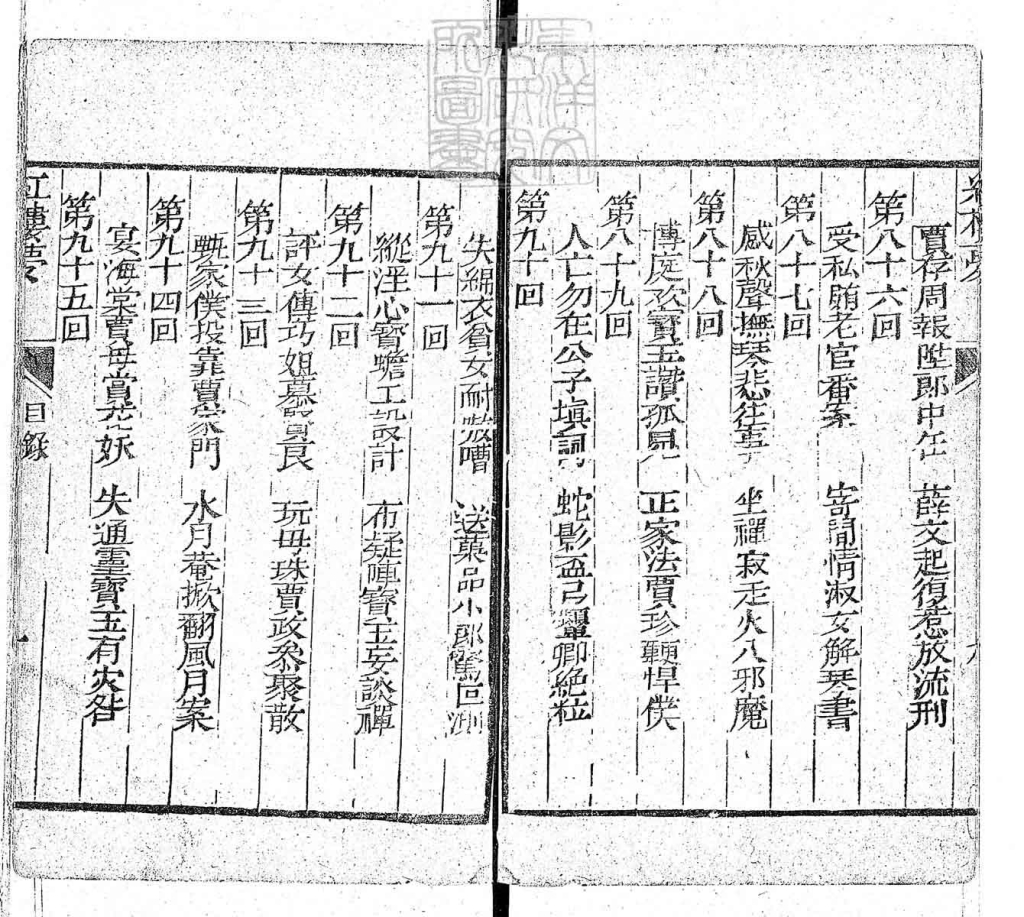 賈存周報陞郎中任 薛文起復惹放流刑
第八十六回
受私賄老官番案 寄閒情淑女解琴書
第八十七回
感秋聲撫琴悲往事 坐禪寂走火入邪魔
第八十八回
博庭歡寶玉讚孤兒 正家法賈珍鞭悍僕
第八十九回
人亡勿在公子塡詞 蛇影盃弓顰卿絶粒
第九十回
失綿衣貧女耐嗷嘈 送菓品小郎驚叵測
第九十一回
縱淫心寳蟾工設計 布疑陣寳玉妄談禪
第九十二回
評女傳巧姐慕賢良 玩母珠賈政叅聚散
第九十三回
甄家僕投靠賈家門 水月菴掀翻風月案
第九十四回
宴海棠賈母賞花妖 失通靈寶玉有灾咎
第九十五回
紅樓夢 目錄